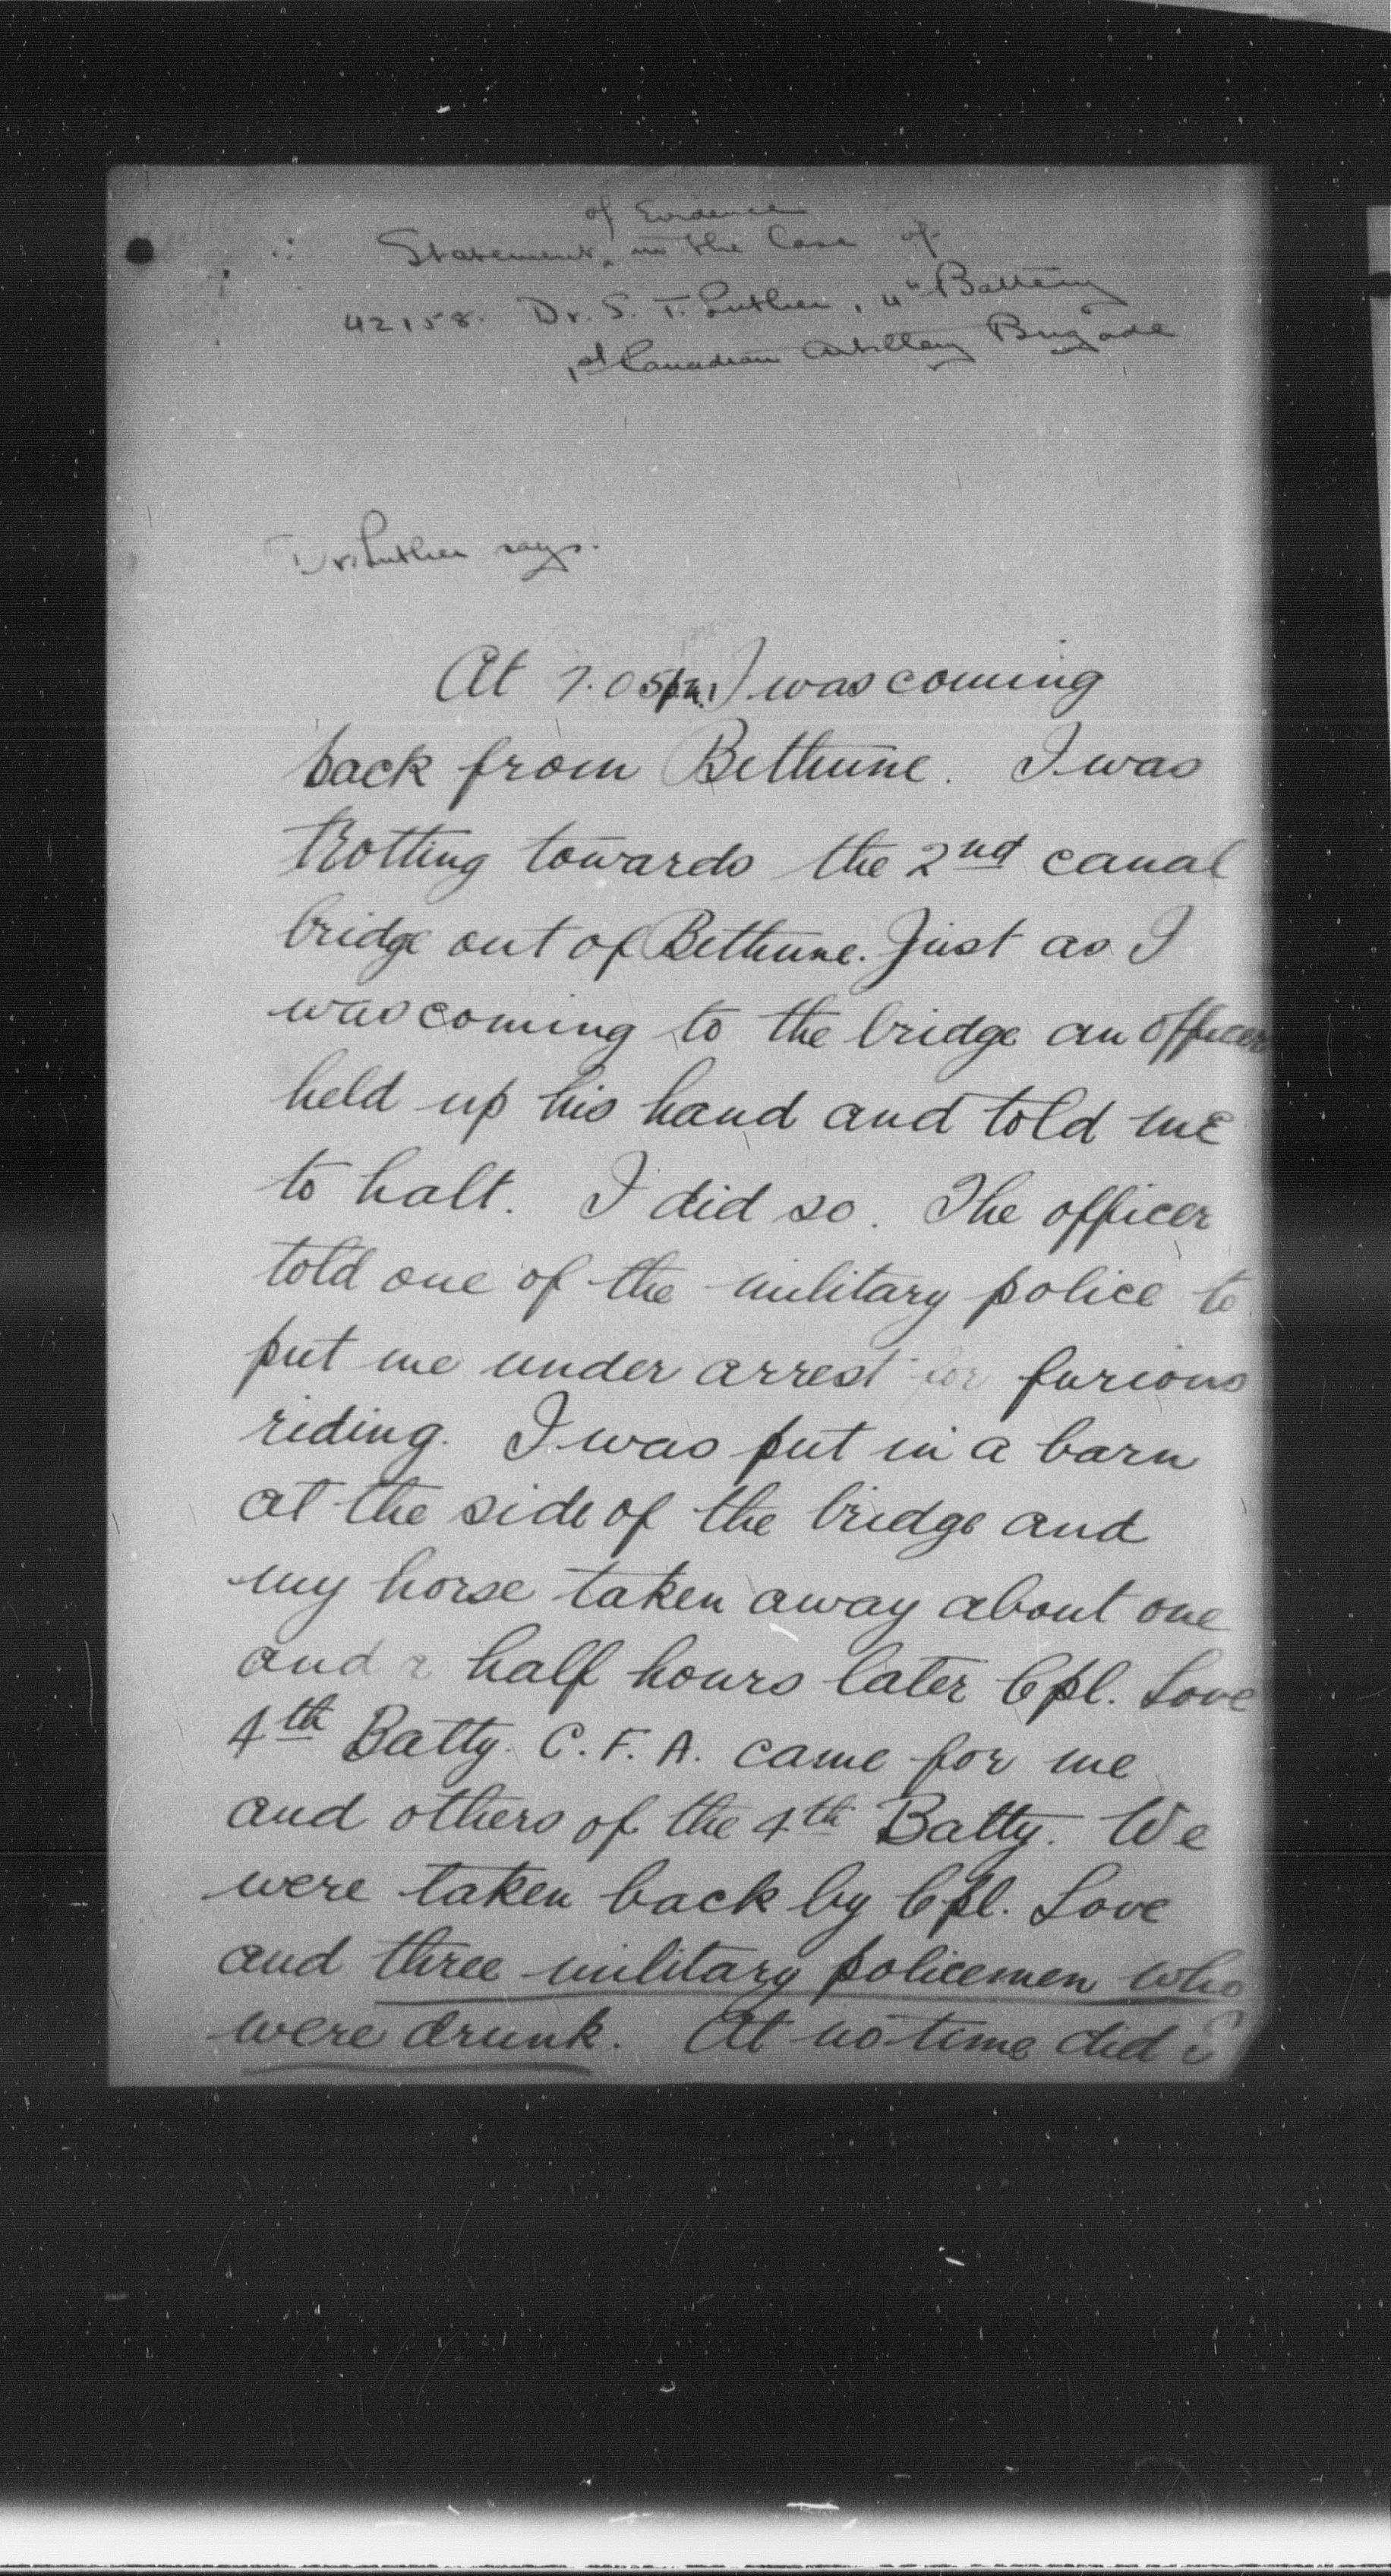 of Evidence
Statement in the Case of
42158. Dr. S. T. Luther, 4th Battery
1st Canadian Artillery Brigade
Dr. Luther says.
At 7.05 p.m. I was coming
back from Bethune. I was
trotting towards the 2nd canal
bridge out of Bethune. Just as I
was coming to the bridge an officer
held up his hand and told me
to halt. I did so. The officer
told one of the military police to
put me under arrest for furious
riding. I was put in a barn
at the side of the bridge and
my horse taken away about one
and a half hours later Cpl. Love
4th Batty. C.F.A. came for me
and others of the 4th Batty. We
were taken back by Cpl. Love
and three military policemen who
were drunk. At no time did I